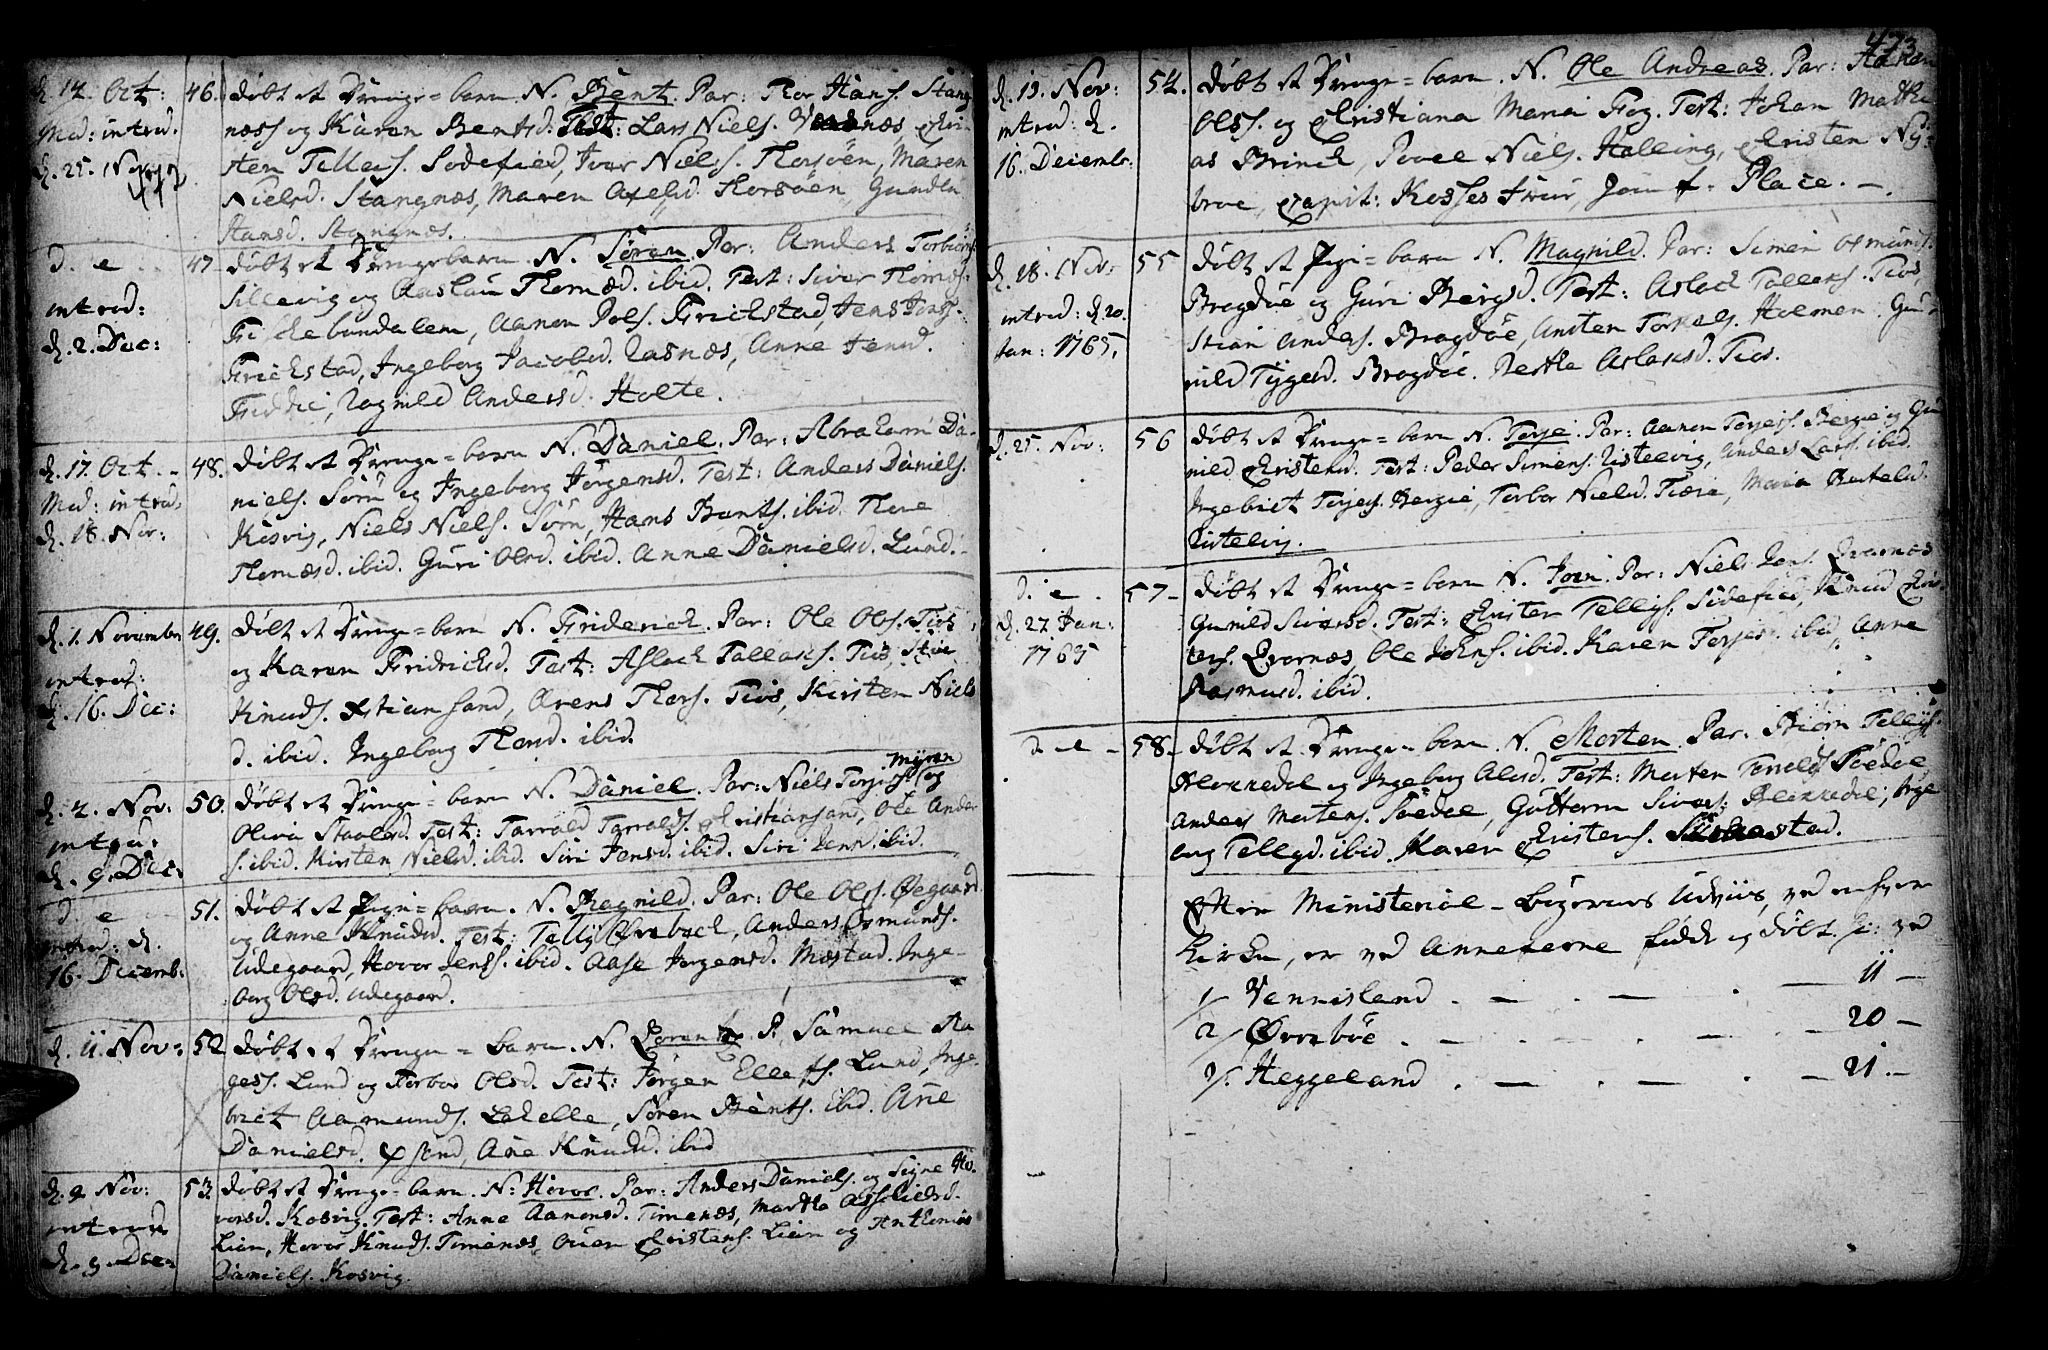 d. 14. Oct:
Med: introd.
d. 25. Nov:
46. døbt et Drenge-barn N. Bentz. Par: Thor Hans. Stang
næss og Karen Bentsd: Test: Lars Niels.
sten Telless. Sødefied, Iver Niels. Thorsöen, Maren
Nielsd. Stangnæs, Maren Axelsd. Thorsöen, Gundla
Hansd. Stangnæs.
d. e
introd:
d. 2. Dec:
47 døbt et Drengebarn N. Søren Par: Anders Torbiörns.
Sillevig og Aaslau Thomæd. ibid. Test: Siver Thomæs.
Frichebundalem, Aanon Pols. Frichstad, Jens Jens.
Frichstad, Ingeborg Jacobsd. Rasnæs, Anne Jensd.
Ragnild Andersd. Holte.
d. 17. Oct.
Med: introd.
d. 18. Nov:
48. døbt et Drenge-barn N. Daniel. Par: Abraham Da-
niels. Søm og Ingeborg Jørgensd. Test: Anders Daniels.
Kosvig, Niels Niels. Søm, Hans Bents. ibid. Thore
Thomæsd. ibid. Guri Olsd. ibid. Anne Danielsd. Lund.
d. 1. Novembr
introd:
d. 16. Dec:
49. døbt et Drenge-barn N. Friderich. Par: Ole Ols. Tios
og Karen Fridrichsd. Test: Aslach Tallachs. Tios,
Knuds. Xstiansand, Ørens Thors. Tios, Kirsten Niels
d. ibid. Ingeborg Thorsd. ibid.
d. 2. Nov:
introd.
d. 9. Dec:
50. døbt et Drenge-barn N. Daniel. Par: Niels Torjes. Myren og
Olivia Staalesd. Test: Tarrald Tarralds. Christiansand, Ole Ander
s. ibid. Kirsten Nielsd. ibid. Siri Jensd. ibid. Siri Jensd. ibid.
d. e
introd: d.
16. Decemb:
51. døbt et Pige-barn. N. Ragnild. Par: Ole Ols. Øegaard
og Anne Knudsd. Test: Tellij Øvrebøch, Anders Osmunds.
Udegaard, Hovor Jenss. ibid. Aase Jørgensd. Mæstad. Inge-
borg Olsd. Udegaard.
d. 11. Nov:
52 døbt et Drenge-barn. N. Lorentz P. Samuel Aa
gess. Lund og Torbor Olsd. Test: Jørgen Ellefs. Lund, Inge-
bret Aamunds. Lohelle, Søren Bents. ibid. Ane
Danielsd. Xsand, Ane Knudsd. ibid
d. 9 Nov:
introd
d. 9. Dec.
53. døbt et Drenge-barn. N: Hovor. Par: Anders Daniels. og Signe Ho-
vorsd. Kosvig. Test: Anne Aanonsd. Timenæs, Martha Assliersd.
Lien, Hovor Knuds. Timenæs, Ouen Christens. Lien og Anthonius
Daniels. Kosvig.
473
d. 11. Nov:
introd: d.
16. Decembr:
54. døbt et Drenge-barn. N. Ole Andreas. Par: Haken
Olss. og Christiana Maria Fog. Test: Johan Mathi
as Brinch, Povel Niels. Halling, Christen Ny-
broe, Capit: Kosses Frue, Jomf. Place.
d. 18. Nov:
introd: d. 20.
Jan: 1765.
55 døbt et Pige-barn N. Magnild. Par: Simen Osmunds.
Bragdøe og Guri Børgsd. Test: Aslach Tallachs. Tios,
Stian Anders. Bragdöe, Ansten Torkels. Holmen. Gun-
nild Tygesd. Bragdöe. Berthe Aslachsd. Tios.
d. 25. Nov:
56 døbt et Drenge-barn N. Torje. Par: Aanon Torjes. Bergie og Gun
nild Christensd. Test: Peder Simens. Ristelvig, Anders Lars. ibid.
Ingebrict Torjes. Bergie, Torbor Nielsd. Maria Bertelsd.
Ristelvig.
d. e.
d. 27. Jan:
1765
57- døbt et Drenge-barn N. Joen. Par: Niels Jens. Qvarnæs
Gunild Siversd. Test: Christen Tellijs. Sødefied, Knud Chris
tens. Qvarnæs, Ole Johns. ibid. Karen Torjesd. ibid, Anne
Rasmusd. ibid.
d. e
58. døbt et Drenge-barn N. Morten. Par. Biørn Tellijs.
og Ingeborg Olsd. Test: Morten Tarralds Söedal
Anders Mortens. Söedal, Guttorm Sivers:
org Tellijsd. ibid. Karen Christens.
Efter Ministerial-Bøgernes Udviis, ved enhver
Kirke, er ved Annexerne fødde og døbt, h: ved
1/ Vennisland 11
2/ Øvrebøe 20
3/. Heggeland 21.